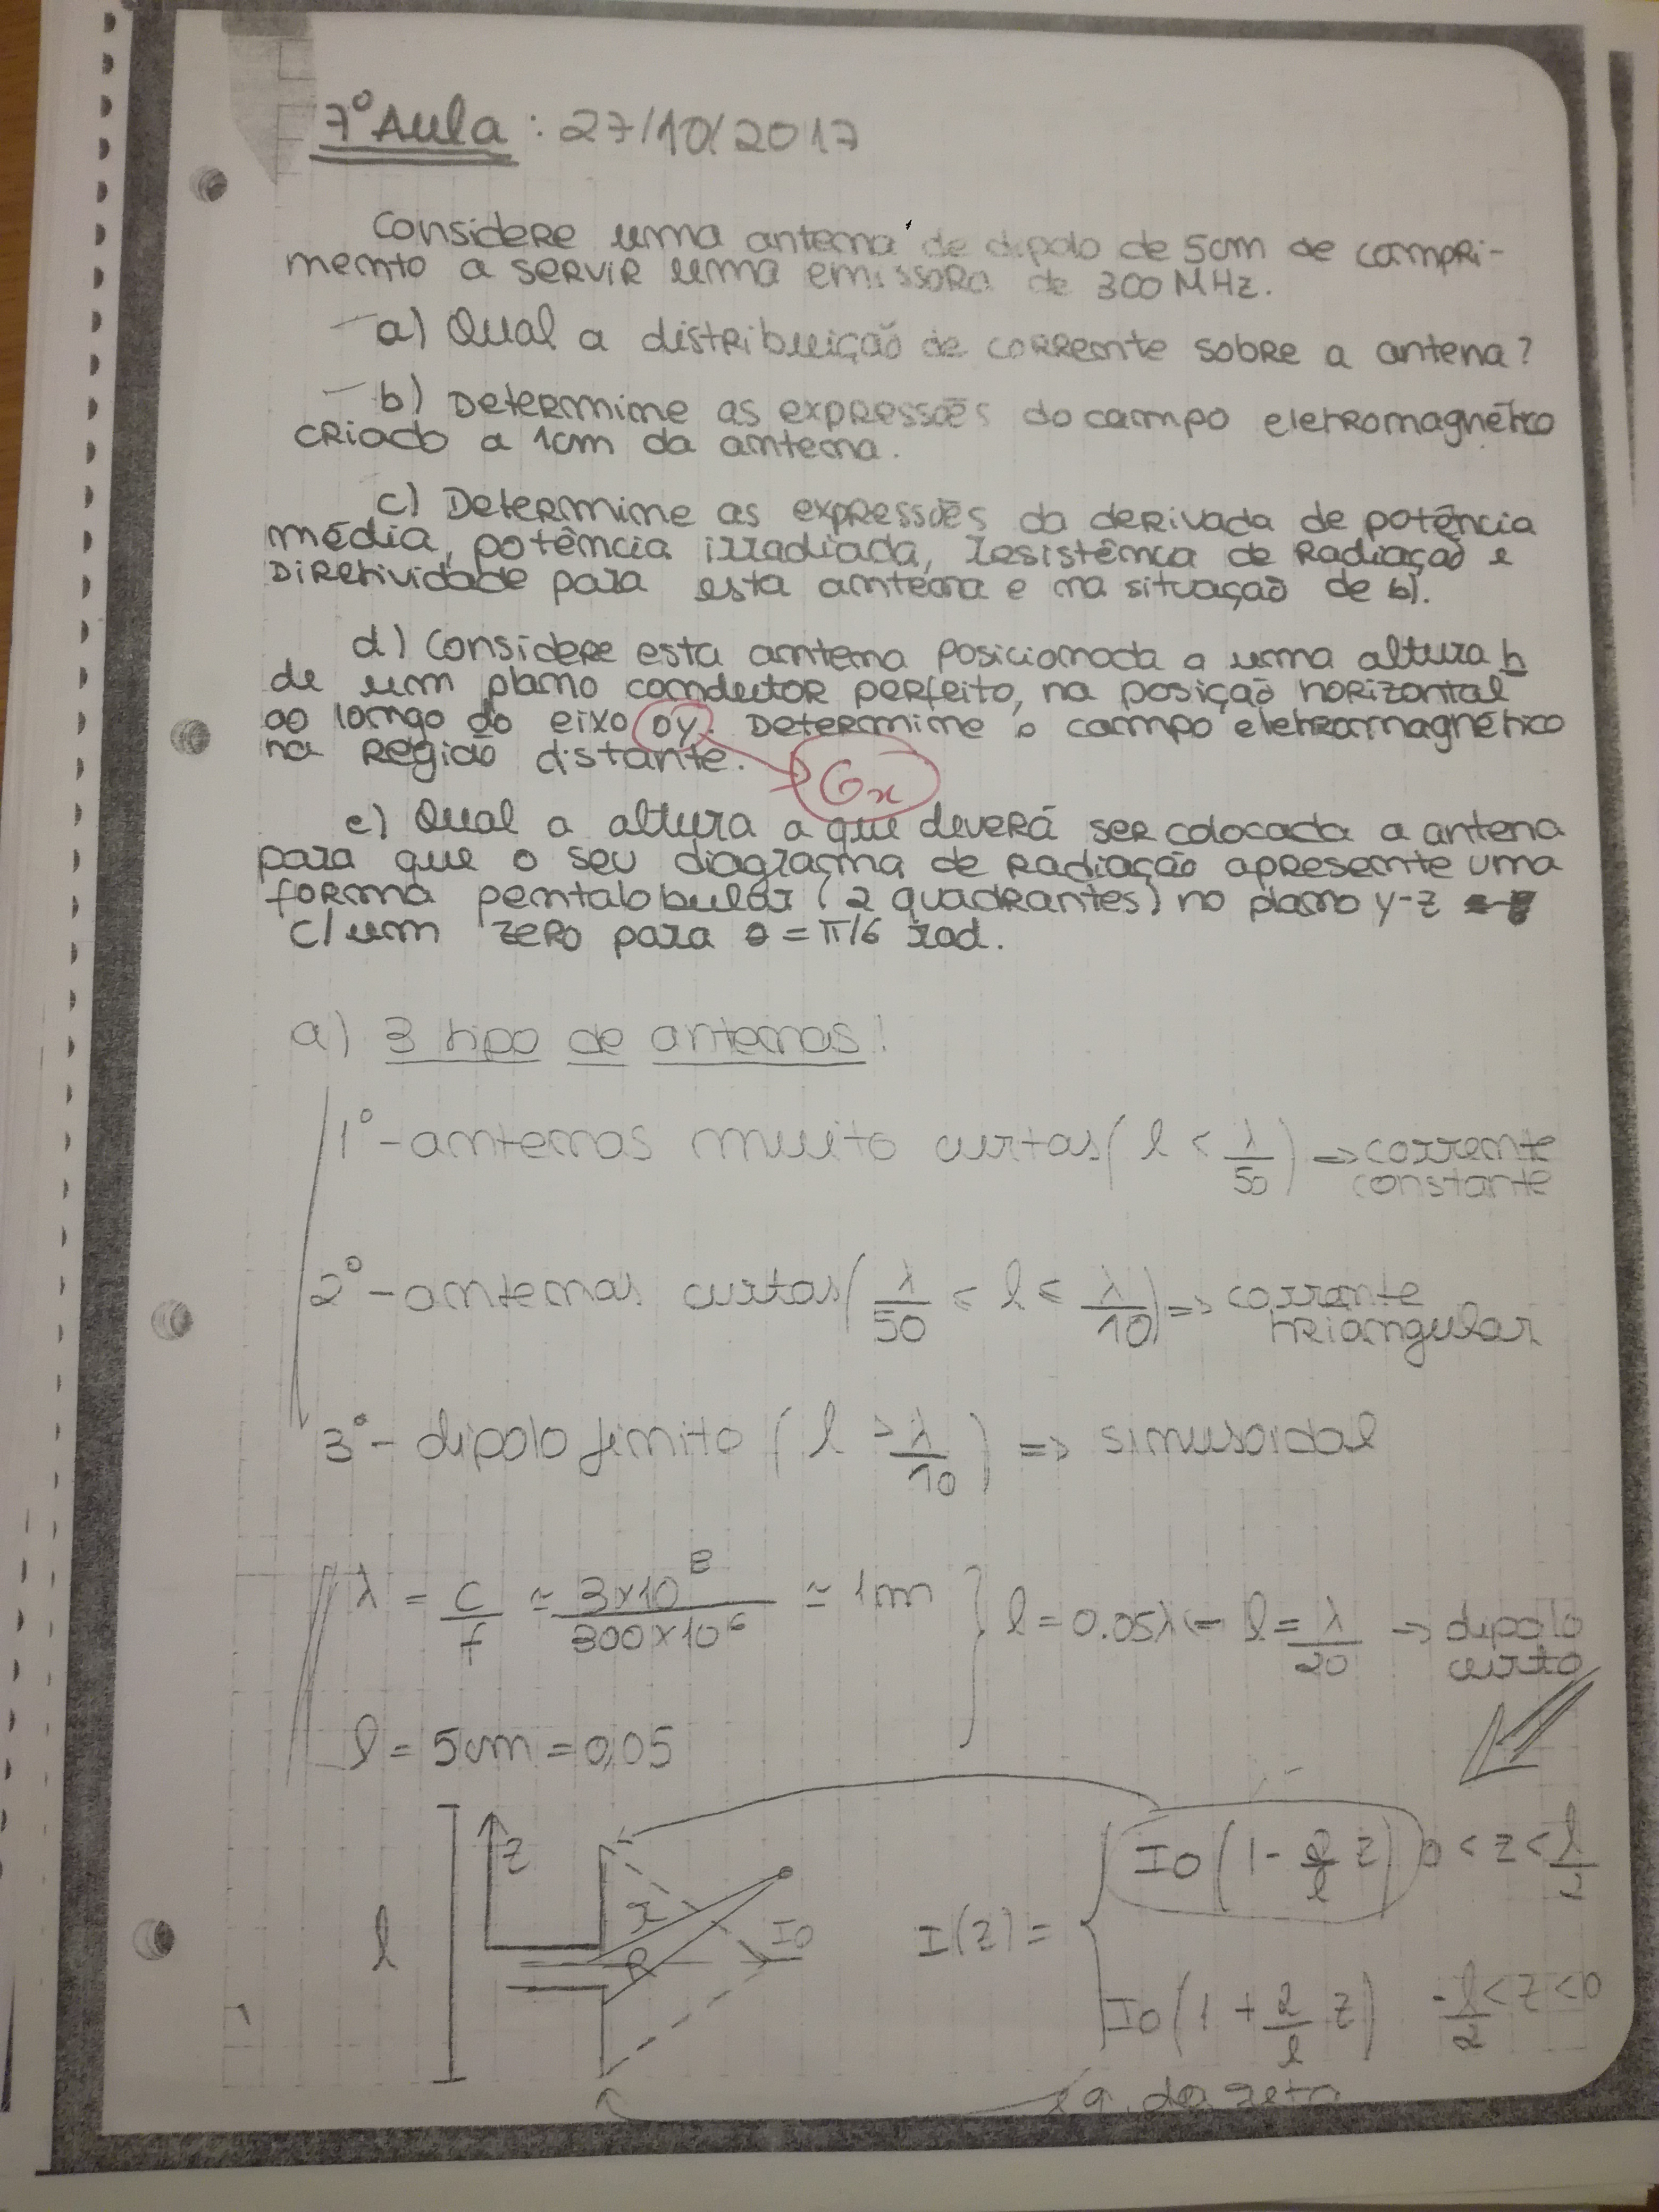 7º Aula : 27/10/2017
Considere uma antena de dipolo de 5cm de compri-
mento a servir uma emissora de 300 MHz.
- a) Qual a distribuição de corrente sobre a antena?
- b) Determine as expressões do campo eletromagnético
criado a 1cm da antena.
c) Determine as expressões da derivada de potência
média, potência irradiada, resistência de Radiação e
Diretividade para esta antena e na situação de b).
d) Considere esta antena posicionada a uma altura h
de um plano condutor perfeito, na posição horizontal
ao longo do eixo oy. Determine o campo eletromagnético
na região distante.
Ox
e) Qual a altura a que deverá ser colocada a antena
para que o seu diagrama de radiação apresente uma
forma pentalobular (2 quadrantes) no plano y-z
c/ um zero para θ = π/6 rad.
a) 3 tipo de antenas!
1º - antenas muito curtas ( l < λ/50 ) => corrente
constante
2º - antenas curtas ( λ/50 < l < λ/10 ) => corrente
triangular
3º - dipolo finito ( l > λ/10 ) => sinusoidal
λ = c/f ≃ 3×10^8 / 300×10^6 ≃ 1m } l = 0.05λ <- l = λ/20 -> dipolo
curto
l = 5cm = 0,05
z
l
r
R
I0
I(z) = { I0 ( 1 - 2/l z ) 0 < z < l/2
I0 ( 1 + 2/l z ) -l/2 < z < 0
eq. da reta